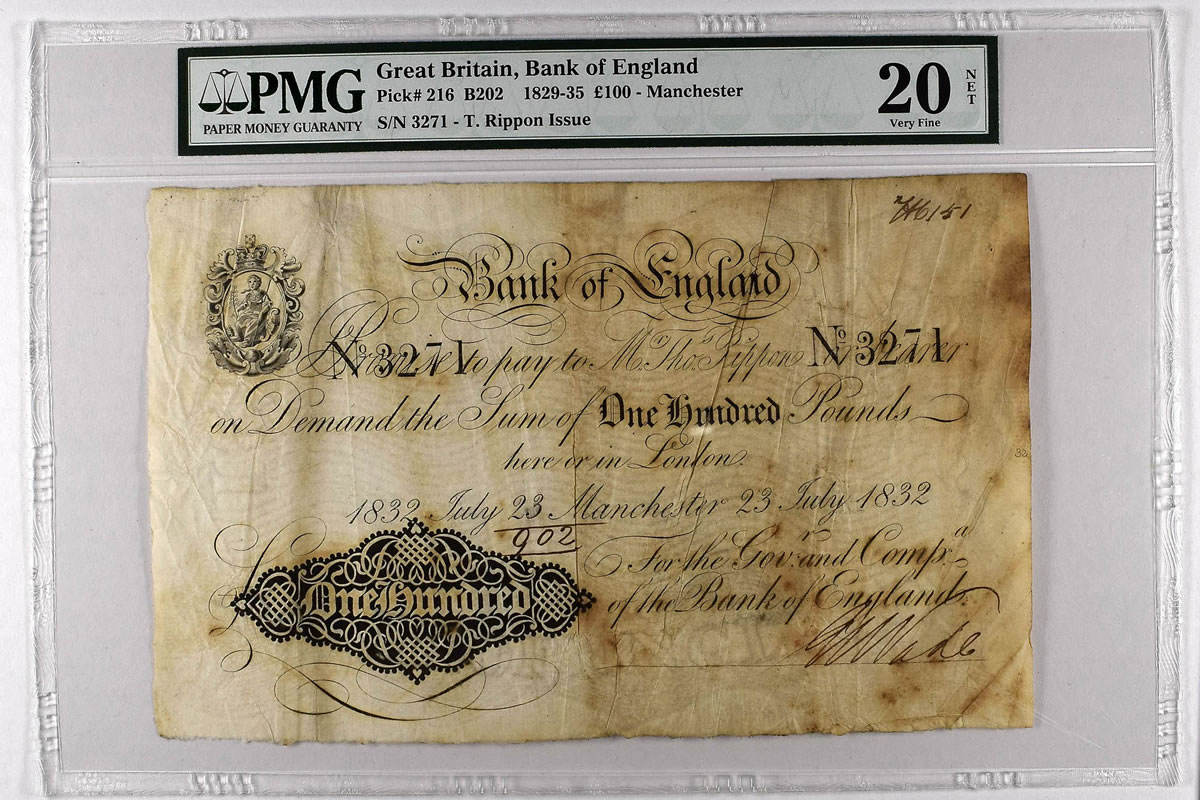 PMG
PAPER MONEY GUARANTY
Great Britain, Bank of England
Pick# 216 B202 1829-35 £100 - Manchester
S/N 3271 - T. Rippon Issue
20 NET
Very Fine
Bank of England
Nº 3271 Nº 3271
Promise to pay to Mr. Thos. Rippon or bearer
on Demand the Sum of One Hundred Pounds
here or in London.
1832 July 23 Manchester 23 July 1832
902
For the Govr. and Compa.
of the Bank of England.
One Hundred
32